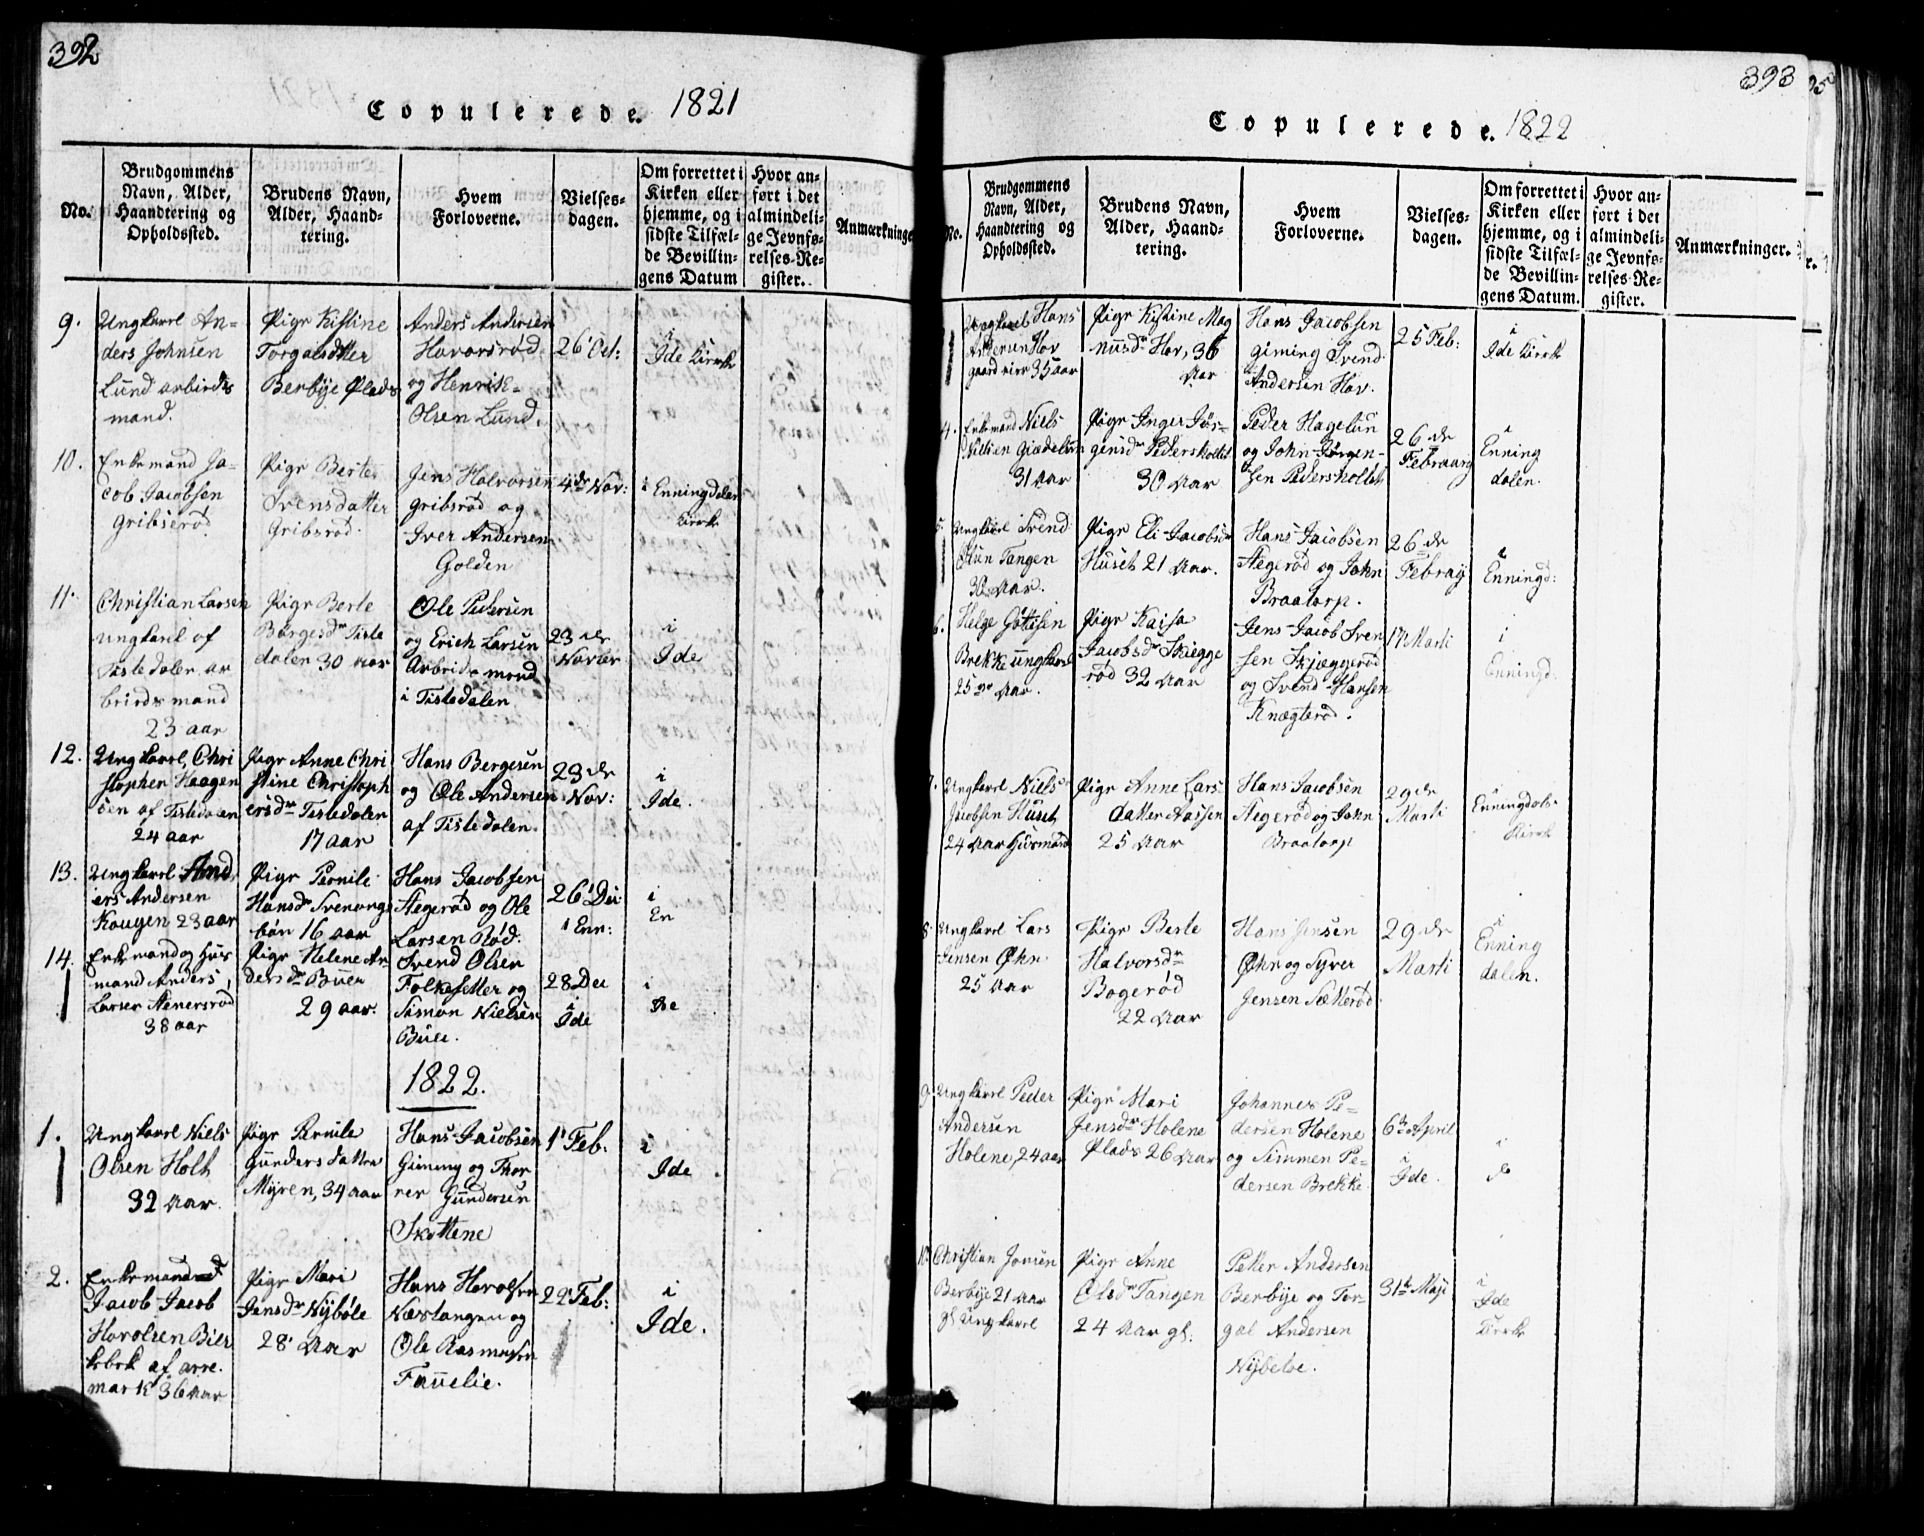 392
Copulerede. 1821
No.
Brudgommens
Navn, Alder,
Haandtering og
Opholdssted.
Brudens Navn,
Alder, Haand-
tering.
Hvem
Forloverne.
Vielses-
dagen.
Om forrettet i
Kirken eller
hjemme, og i
sidste Tilfæl-
de Bevillin-
gens Datum
Hvor an-
ført i det
almindeli-
ge Jevnfø-
relses-Re-
gister.
Anmærkninge
9.
Ungkarl An-
ders Johnsen
Lund arbirds
mand.
Pige Kistine
Torgalsdatter
Berbye Plads
Anders Andersen
Havorsrød
og Henrik
Olsen Lund.
26 Oct:
i
Ide Kirrke
10.
Enkemand Ja-
cob Jacobsen
Gribserød.
Pige Berte
Svensdatter
Gribsrød.
Jens Halvorsen
Gribsrød og
Iver Andersen
Golden
4de Nov:
i Enningdalen
Kirrke
11.
Christian Larsen
ungkarl of
Tistedalen ar
birds mand
23 aar
Pige Berte
Børgesdr Tiste
dalen 30 aar
Ole Pedersen
og Erich Larsen
Arbeids mænd
i Tistedalen
23de
Novber
i
Ide
12.
Ungkarl Chri
stopher Haagen
sen af Tistedalen
24 aar
Pige Anne Chri
stine Christoph
ersdr Tistedalen
17 aar
Hans Bergesen
og Ole Andersen
af Tistedalen.
23de
Nov:
i
Ide.
13.
Ungkarl And
ers Andersen
Kougen 23 aar
Pige Pernile
Hansdr Svenunge
bøn 16 aar
Hans Jacobsen
Stegerød og Ole
Larsen Rød.
26 Dei
i Enn:
i
En
14.
Enkemand og Huus
mand Anders
Larsen Stenersrød
38 aar
Pige Helene An-
dersdr Buer
29 aar.
Svend Olsen
Folkesetter og
Simon Nielsen
Buer.
28 Dei
i
Ide
i
De
1822.
1.
Ungkarl Niels
Olsen Holt
32 Aar.
Pige Pernile
Gundersdatter
Myren, 34 aar
Hans Jacobsen
Gimmy og Thor
ner Gundersen
Skottene
1 Feb.
i
Ide
2.
Enkemand
Jacob Jacob
Harolsen Bier
kebek af arre-
mark 36 Aar
Pige Mari
Jensdr Nybøle
28 Aar
Hans Harolsen
Næstangen og
Ole Rasmussen
Fauelie.
22 Feb:
i
Ide.
393
Copulerede. 1822
No.
Brudgommens
Navn, Alder,
Haandtering og
Opholdssted.
Brudens Navn,
Alder, Haand-
tering.
Hvem
Forloverne.
Vielses-
dagen.
Om forrettet i
Kirken eller
hjemme, og i
sidste Tilfæl-
de Bevillin-
gens Datum.
Hvor an-
ført i det
almindeli-
ge Jevnfø-
relses-Re-
gister.
Anmærkninger.
Ungkarl Hans
Andersen Hov
gaard eier 35 aar
Pige Kistine Mag
nusdr Hov, 36
Aar
Hans Jacobsen
Giming Svend
Andersen Hov.
25 Feb:
i
Ide Kirrke
4.
Enkemand Niels
Nilsen Giedelun
31 Aar
Pige Inger Jør-
gensdr Pedersholtet
30 Aar
Peder Hagelun
og John Jørgen-
sen Pedersholtet
26de
Februarij
i
Enning
dalen.
5.
Ungkarl Svend
Olsen Tangen
32 Aar.
Pige Eli Jacobsdr
Huset 21 Aar.
Hans Jacobsen
Stegerød og John
Braatorp.
26de
Febraij
i
Enningd:
6.
Helge Gottesen
Brekke ungkarl
25 Aar.
Pige Kaisa
Jacobsdr Skiegge
rød 32 Aar
Jens Jacob Sven
sen Skjæggerød
og Svend Hansen
Knægterød.
17 Marti
i
Enningd.
7.
Ungkarl Niels
Jacobsen Huset
24 Aar Husmand
Pige Anne Lars
datter Aassen
25 Aar
Hans Jacobsen
Stegerød og John
Braatorp
29de
Marti
Enningdals
Kirrk
8.
Ungkarl Lars
Jensen Øhn
25 Aar
Pige Berte
Halvorsdr
Bogerød
22 Aar
Hans Jensen
Øhn og Syver
Jensen Sætterød
29de
Marti
i
Enning
dalen.
9.
Ungkarl Peder
Andersen
Holene, 24 aar
Pige Mari
Jensdr Holene
Plads 26 Aar
Johannes Pe-
dersen Holene
og Simmen Pe-
dersen Brekke
6te April
i
Ide.
i
10.
Christian Jonsen
Berbye 21 Aar
gl Ungkarl
Pige Anne
Olsdr Tangen
24 Aar gl.
Petter Andersen
Berbye og Tor-
gal Andersen
Nybeløe.
31te Maji
i
Ide
Kirrke